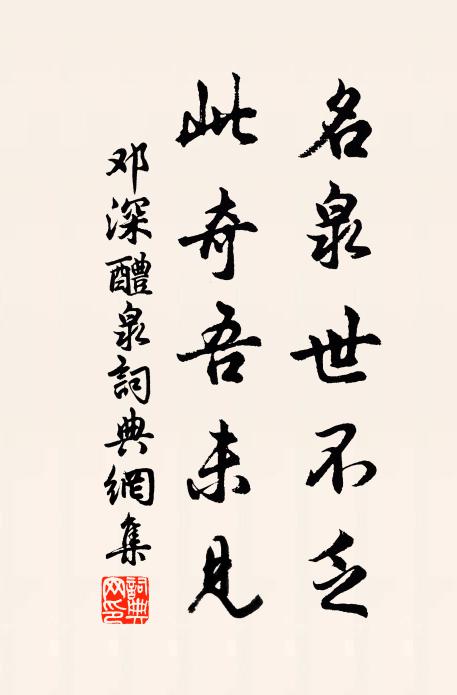 名泉世不乏
此奇吾未见
邓深醴泉詞典網集
詞典网印